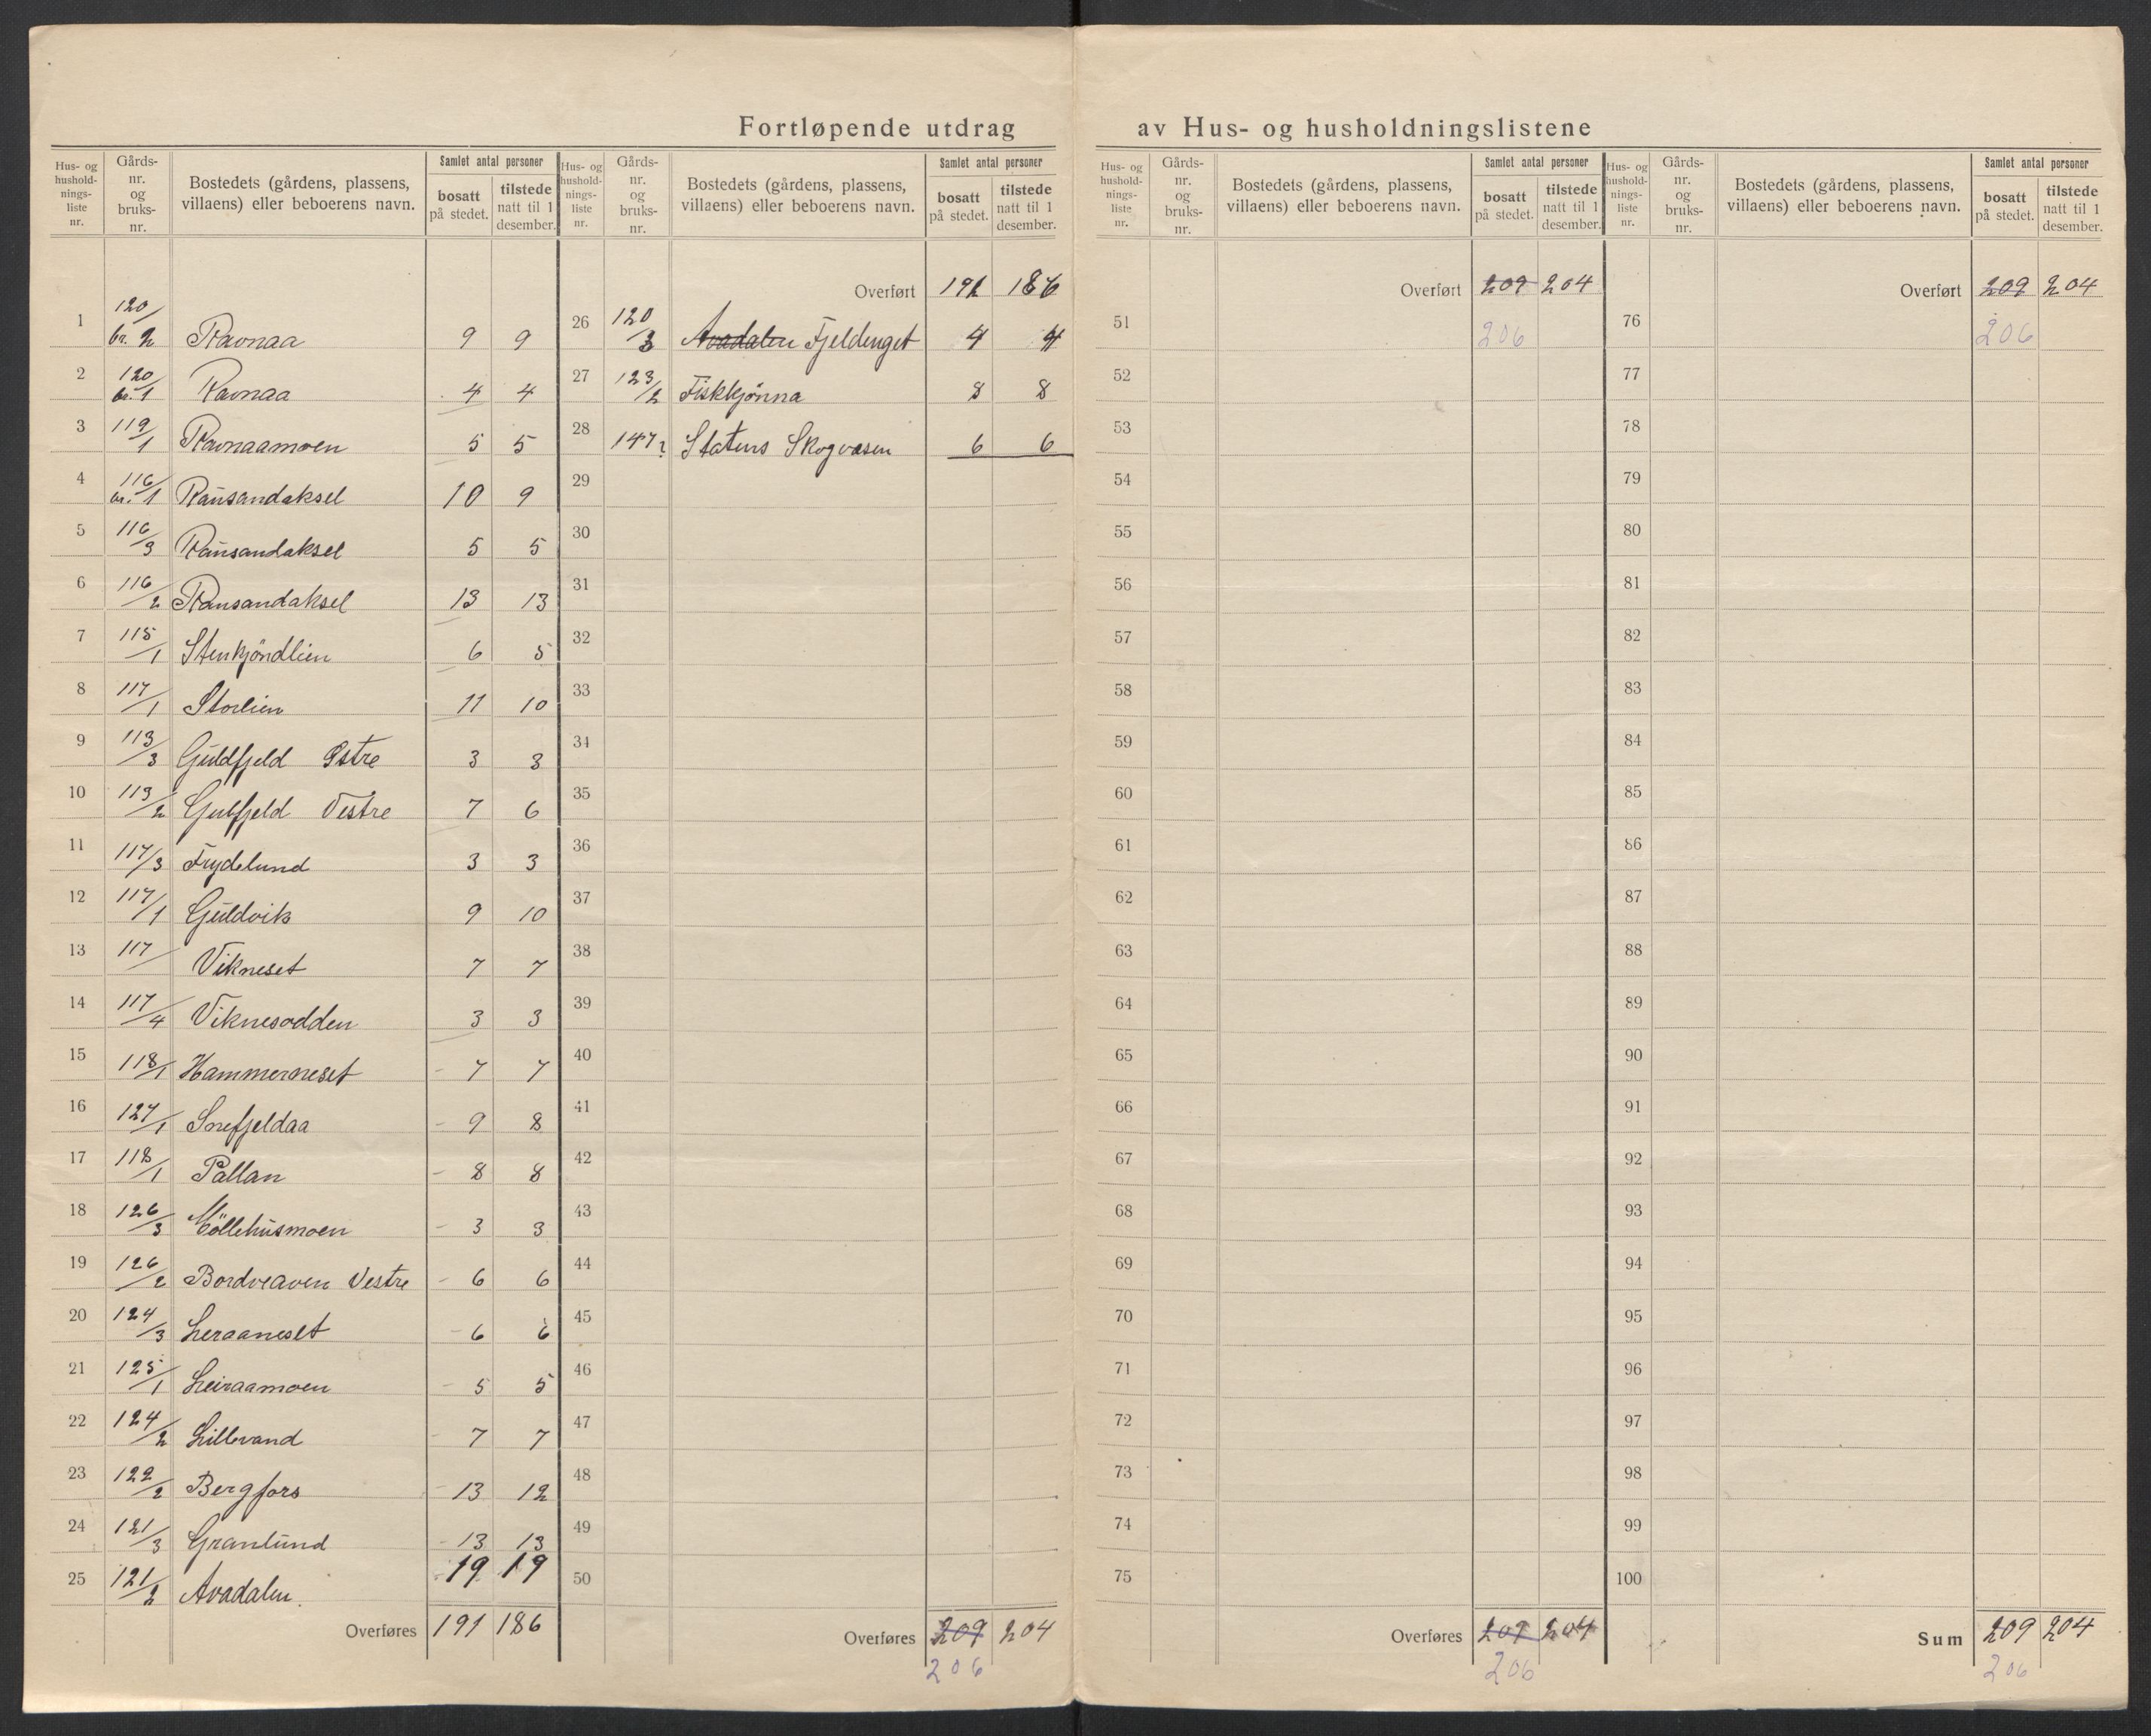 Fortløpende utdrag av Hus- og husholdningslistene
Hus- og husholdningsliste nr. Gårds-nr. og bruks-nr. Bostedets (gårdens, plassens, villaens) eller beboerens navn. Samlet antal personer bosatt på stedet. tilstede natt til 1 desember.
1 120/ br. 2 Ravnaa 9 9
2 120/ br. 1 Ravnaa 4 4
3 119/1 Ravnaamoen 5 5
4 116/ br. 1 Rausandaksel 10 9
5 116/3 Rausandaksel 5 5
6 116/2 Rausandaksel 13 13
7 115/1 Stenkjöndlien 6 5
8 117/1 Storlien 11 10
9 113/3 Guldfjeld Østre 3 3
10 113/2 Gulfjeld Vestre 7 6
11 117/3 Frydelund 3 3
12 117/1 Guldvik 9 10
13 117/ Vikneset 7 7
14 117/4 Viknesodden 3 3
15 118/1 Hammerneset - 7 7
16 127/1 Snefjeldaa - 9 8
17 118/1 Pallan - 8 8
18 126/3 Möllehusmoen - 3 3
19 126/2 Bordveaven Vestre - 6 6
20 124/3 Leraaneset - 6 6
21 125/1 Leiraamoen - 5 5
22 124/2 Lillevand - 7 7
23 122/2 Bergfors - 13 12
24 121/3 Granlund - 13 13
25 121/2 Avadalen. 19 19
Overføres 191 186
Hus- og husholdningsliste nr. Gårds-nr. og bruks-nr. Bostedets (gårdens, plassens, villaens) eller beboerens navn. Samlet antal personer bosatt på stedet. tilstede natt til 1 desember.
Overført 191 186
26 120/3 Avadalen Fjeldenget 4 4
27 123/2 Fiskkjønna 8 8
28 147? Statens Skogvæsen 6 6
29
30
31
32
33
34
35
36
37
38
39
40
41
42
43
44
45
46
47
48
49
50
Overføres 209 204
206
Hus- og husholdningsliste nr. Gårds-nr. og bruks-nr. Bostedets (gårdens, plassens, villaens) eller beboerens navn. Samlet antal personer bosatt på stedet. tilstede natt til 1 desember.
Overført 209 204
51 206
52
53
54
55
56
57
58
59
60
61
62
63
64
65
66
67
68
69
70
71
72
73
74
75
Overføres 209 204
206
Hus- og husholdningsliste nr. Gårds-nr. og bruks-nr. Bostedets (gårdens, plassens, villaens) eller beboerens navn. Samlet antal personer bosatt på stedet. tilstede natt til 1 desember.
Overført 209 204
76 206
77
78
79
80
81
82
83
84
85
86
87
88
89
90
91
92
93
94
95
96
97
98
99
100
Sum 209 204
206